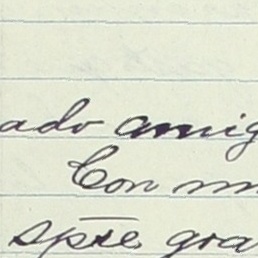 ado amig
Con m
spre gra